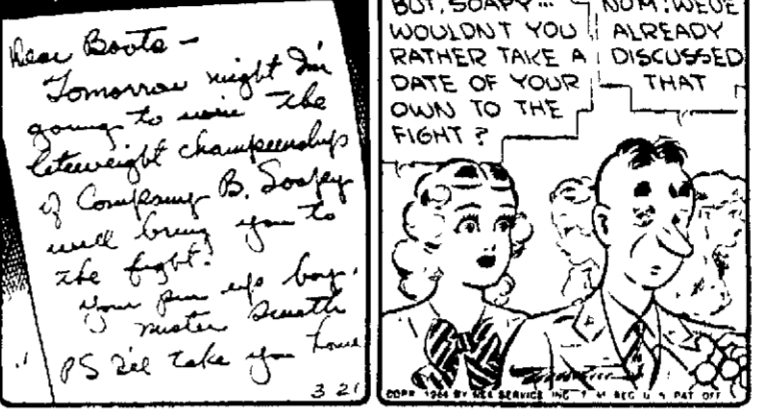 Dear Boots -
Tomorrow night I'm
going to win the
liteweight champeenship
of Company B. Soapy
will bring you to
the fight.
Your pin up boy,
mister
PS I'll take you home
3 21
BUT, SOAPY...
WOULDN'T YOU
RATHER TAKE A
DATE OF YOUR
OWN TO THE
FIGHT?
WE'VE
ALREADY
DISCUSSED
THAT
COPR. 1944 BY NEA SERVICE INC. T. M. REG. U. S. PAT. OFF.